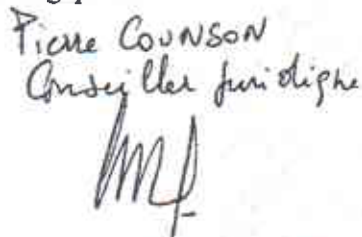 Pierre COUNSON
Conseiller juridique